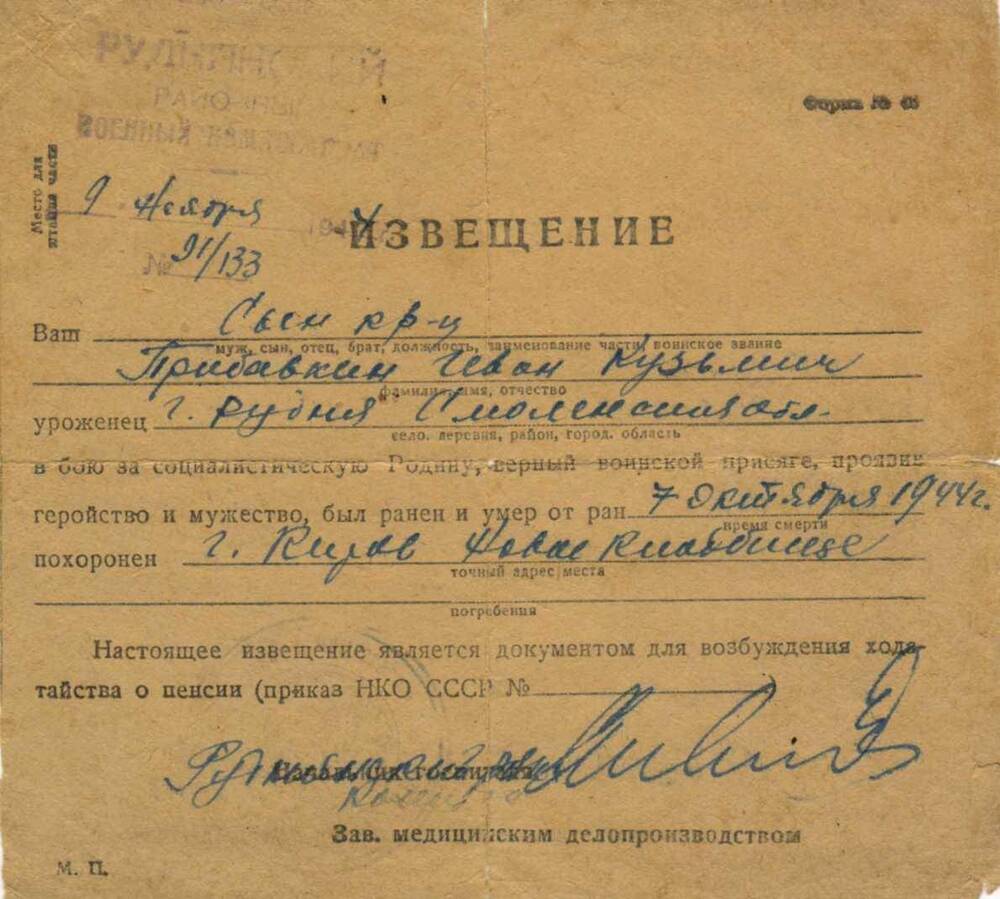 РУДНЯНСКИЙ
РАЙОННЫЙ
ВОЕННЫЙ КОМИССАРИАТ
Форма № 
Место для
штампа части
9 Ноября 1944
ИЗВЕЩЕНИЕ
№ 91/133
Ваш Сын кр-ц
муж, сын, отец, брат, должность, наименование части, воинское звание
Прибавкин Иван Кузьмич
фамилия, имя, отчество
уроженец г. Рудня Смоленская обл.
село, деревня, район, город, область
в бою за социалистическую Родину, верный воинской присяге, проявив
геройство и мужество, был ранен и умер от ран 7 Октября 1944 г.
время смерти
похоронен г. Новое
точный адрес места
погребения
Настоящее извещение является документом для возбуждения хода-
тайства о пенсии (приказ НКО СССР № )
Начальник госпиталя
Зав. медицинским делопроизводством
М. П.